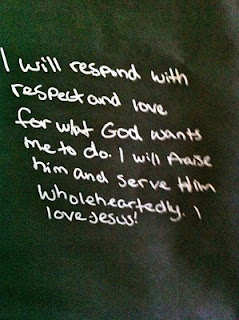 I will respond with
respect and love
for what God wants
me to do. I will Praise
him and serve Him
wholeheartedly. I
love Jesus!